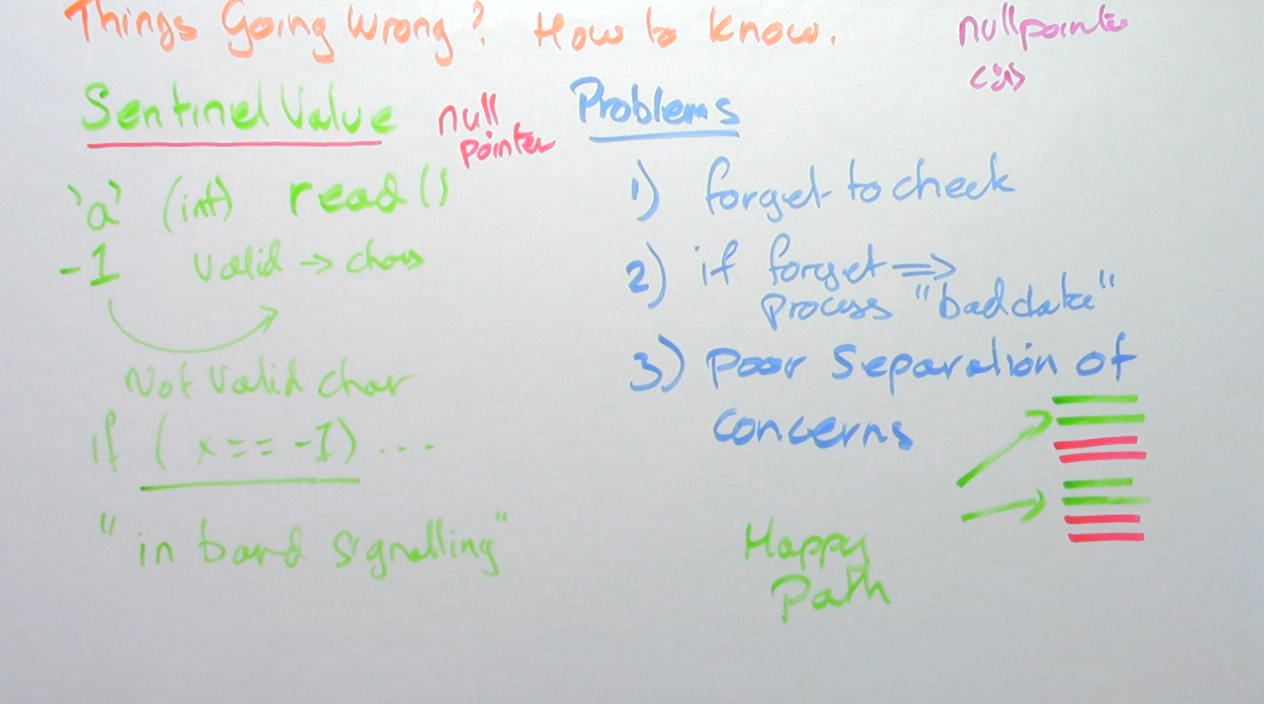 Things Going Wrong? How to know.
nullpointer
Sentinel Value
null
pointer
'a' (int) read()
-1 valid -> chars
Not valid char
if ( x == -1) ...
"in band signalling"
Problems
1) forget to check
2) if forget =>
process "bad data"
3) Poor Separation of
concerns
Happy
Path